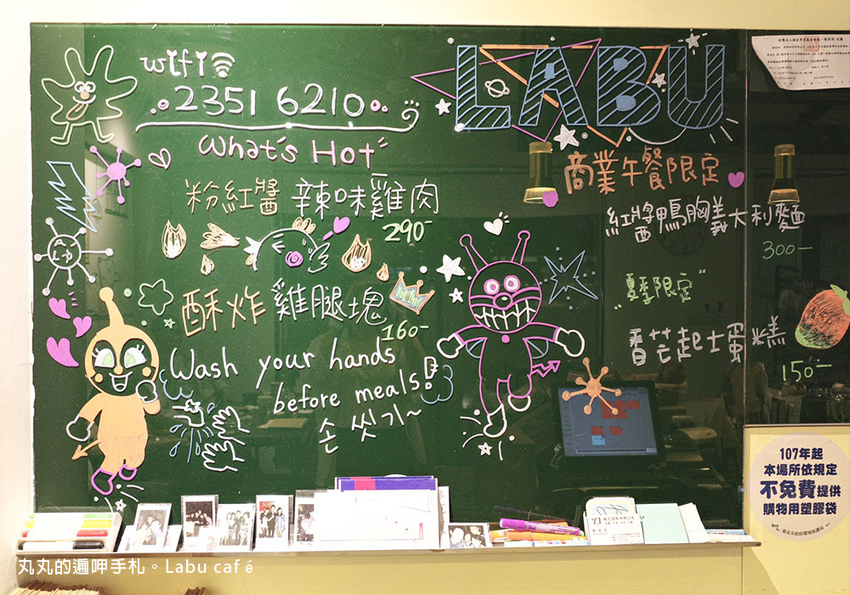 wifi
2351 6210
What's Hot
粉紅醬 辣味雞肉
290-
酥炸雞腿塊
160-
Wash your hands
before meals!
손 씻기~
LABU
商業午餐限定
紅醬鴨胸義大利麵
300-
"夏季限定"
香芒起士蛋糕
150-
107年起
本場所依規定
不免費提供
購物用塑膠袋
丸丸的遍呷手札。Labu café